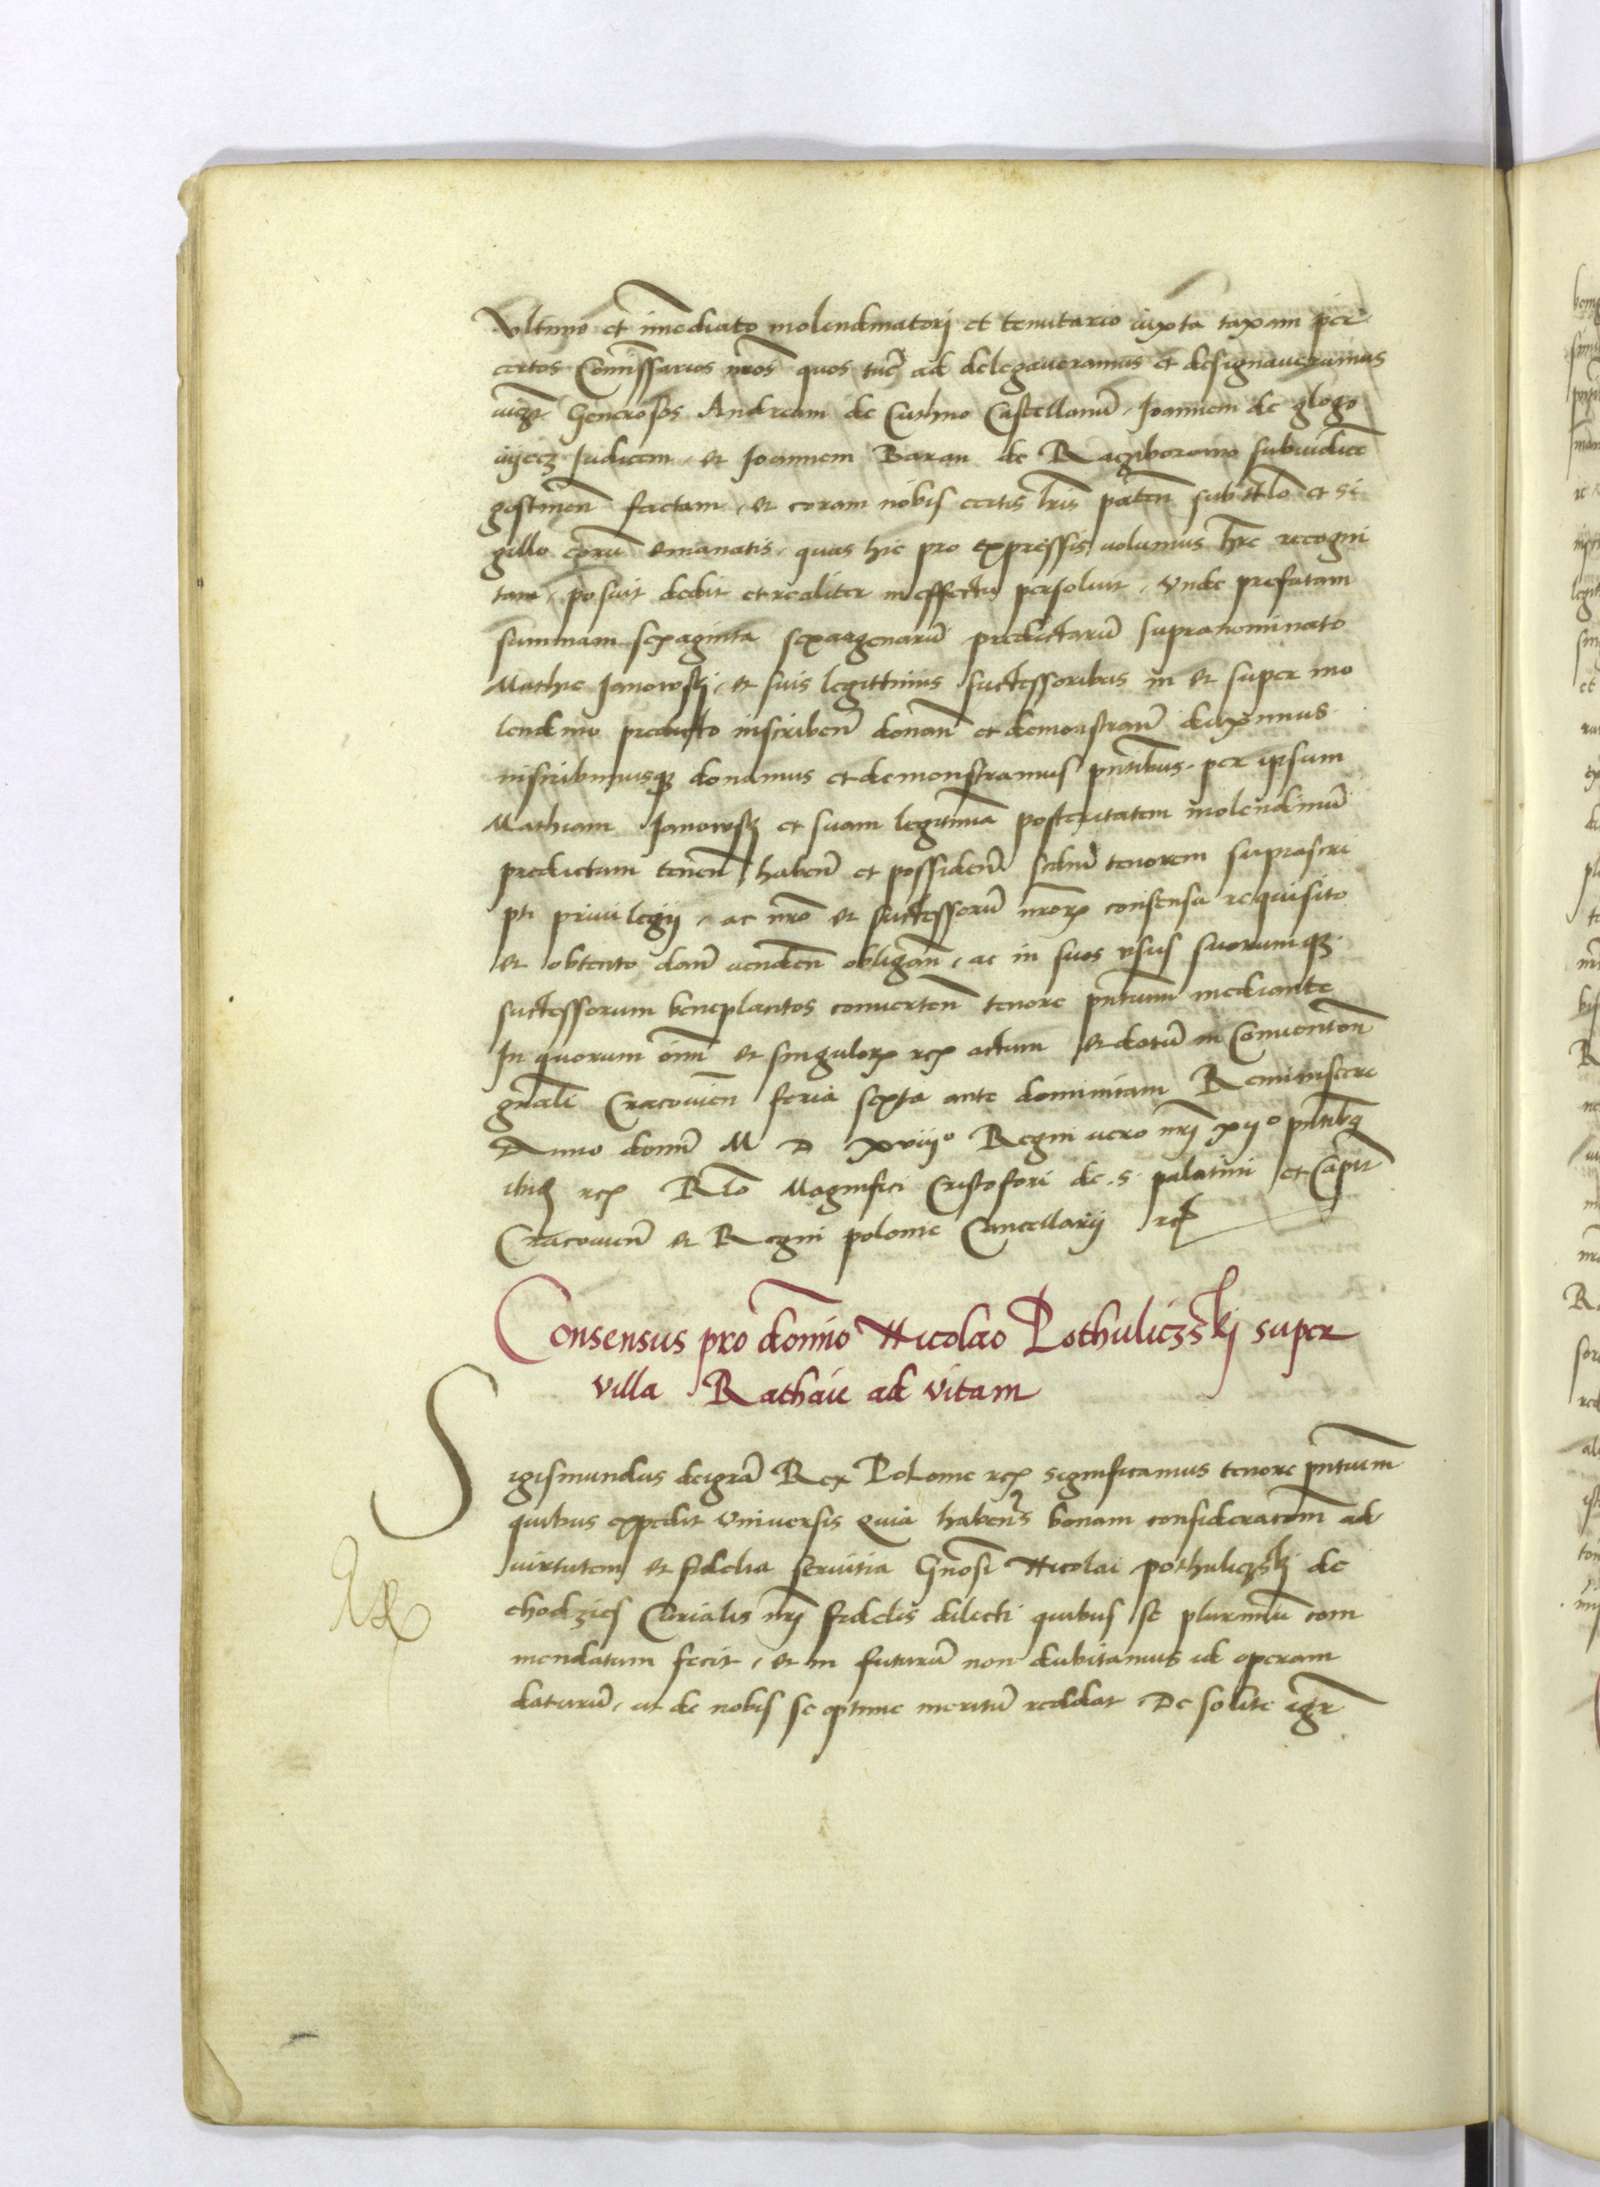 Vltimo et im̄ediato molendinatori et tenutario iuxta taxam per
certos Com̄issarios nr̄os quos tūc ad delegaueramus et designaueramus
vig̃ Generosos Andream de Cuthno Castellanū, Ioannem de glogo
Iudicem, et Ioannem Baran de Racziborowo subiudicē
gostinen̄ factam, et coram nobis certis lr̄is paten̄ sub tt̄lo et si
gillo eorū emanatis, quas hic pro expressis volumus hr̄e recogni
tam, posuit dedit et realiter in effectu persoluit, Vnde prefatam
summam sexaginta sexagenarū predictarū supranominato
Mathie Ianowskj, et suis legittimis successoribus in et super mo
lendino predicto inscriben̄ donan̄ et demonstran̄ duximus
inscribimusq̨ donamus et demonstramus pn̄tibus, per ipsum
Mathiam Ianowskj et suam legitimā posteritatem molendinū
predictum tenen̄ haben̄ et possiden̄ scd̄m tenorem suprascri
pti priuilegij, ac nr̄o et successorū nr̄orꝝ consensu requisito
et obtento dan̄ venden̄ obligan̄, ac in suos vsus suorumq̨
successorum beneplacitos conuerten̄ tenore pn̄tium mediante
In quorum om̄i et singulorꝝ rc̄ꝝ actum et datū in Conuention̄
gn̄ali Cracouien̄ feria sexta ante dominicam Reminiscere
Anno domī M D xviij° Regni vero nr̄j xij° pn̄tibq̨
ibiq̨ rcꝝ Rlō Magnifici Cristofori de .S. palatini et Capit̄
Cracouien̄ et Regni polonie Cancellarij rcꝝ
Consensus pro domīno Nicolao Pothuliczskj super
villa Rathaie ad vitam
Sigismundus dei grā Rex Polonie rcꝝ significamus tenore pn̄tium
quibus expedit Vniuersis Quia haben̄s bonam consideracōem ad
virtutem et fidelia seruitia Gn̄osi Nicolai pothuliczskj de
chodzies Curialis nr̄j fidelis dilecti quibus se plurimū com
mendatum fecit, et in futurū non dubitamus id operam
daturū, ut de nobis se optime meritū reddat, De solite ig̃r